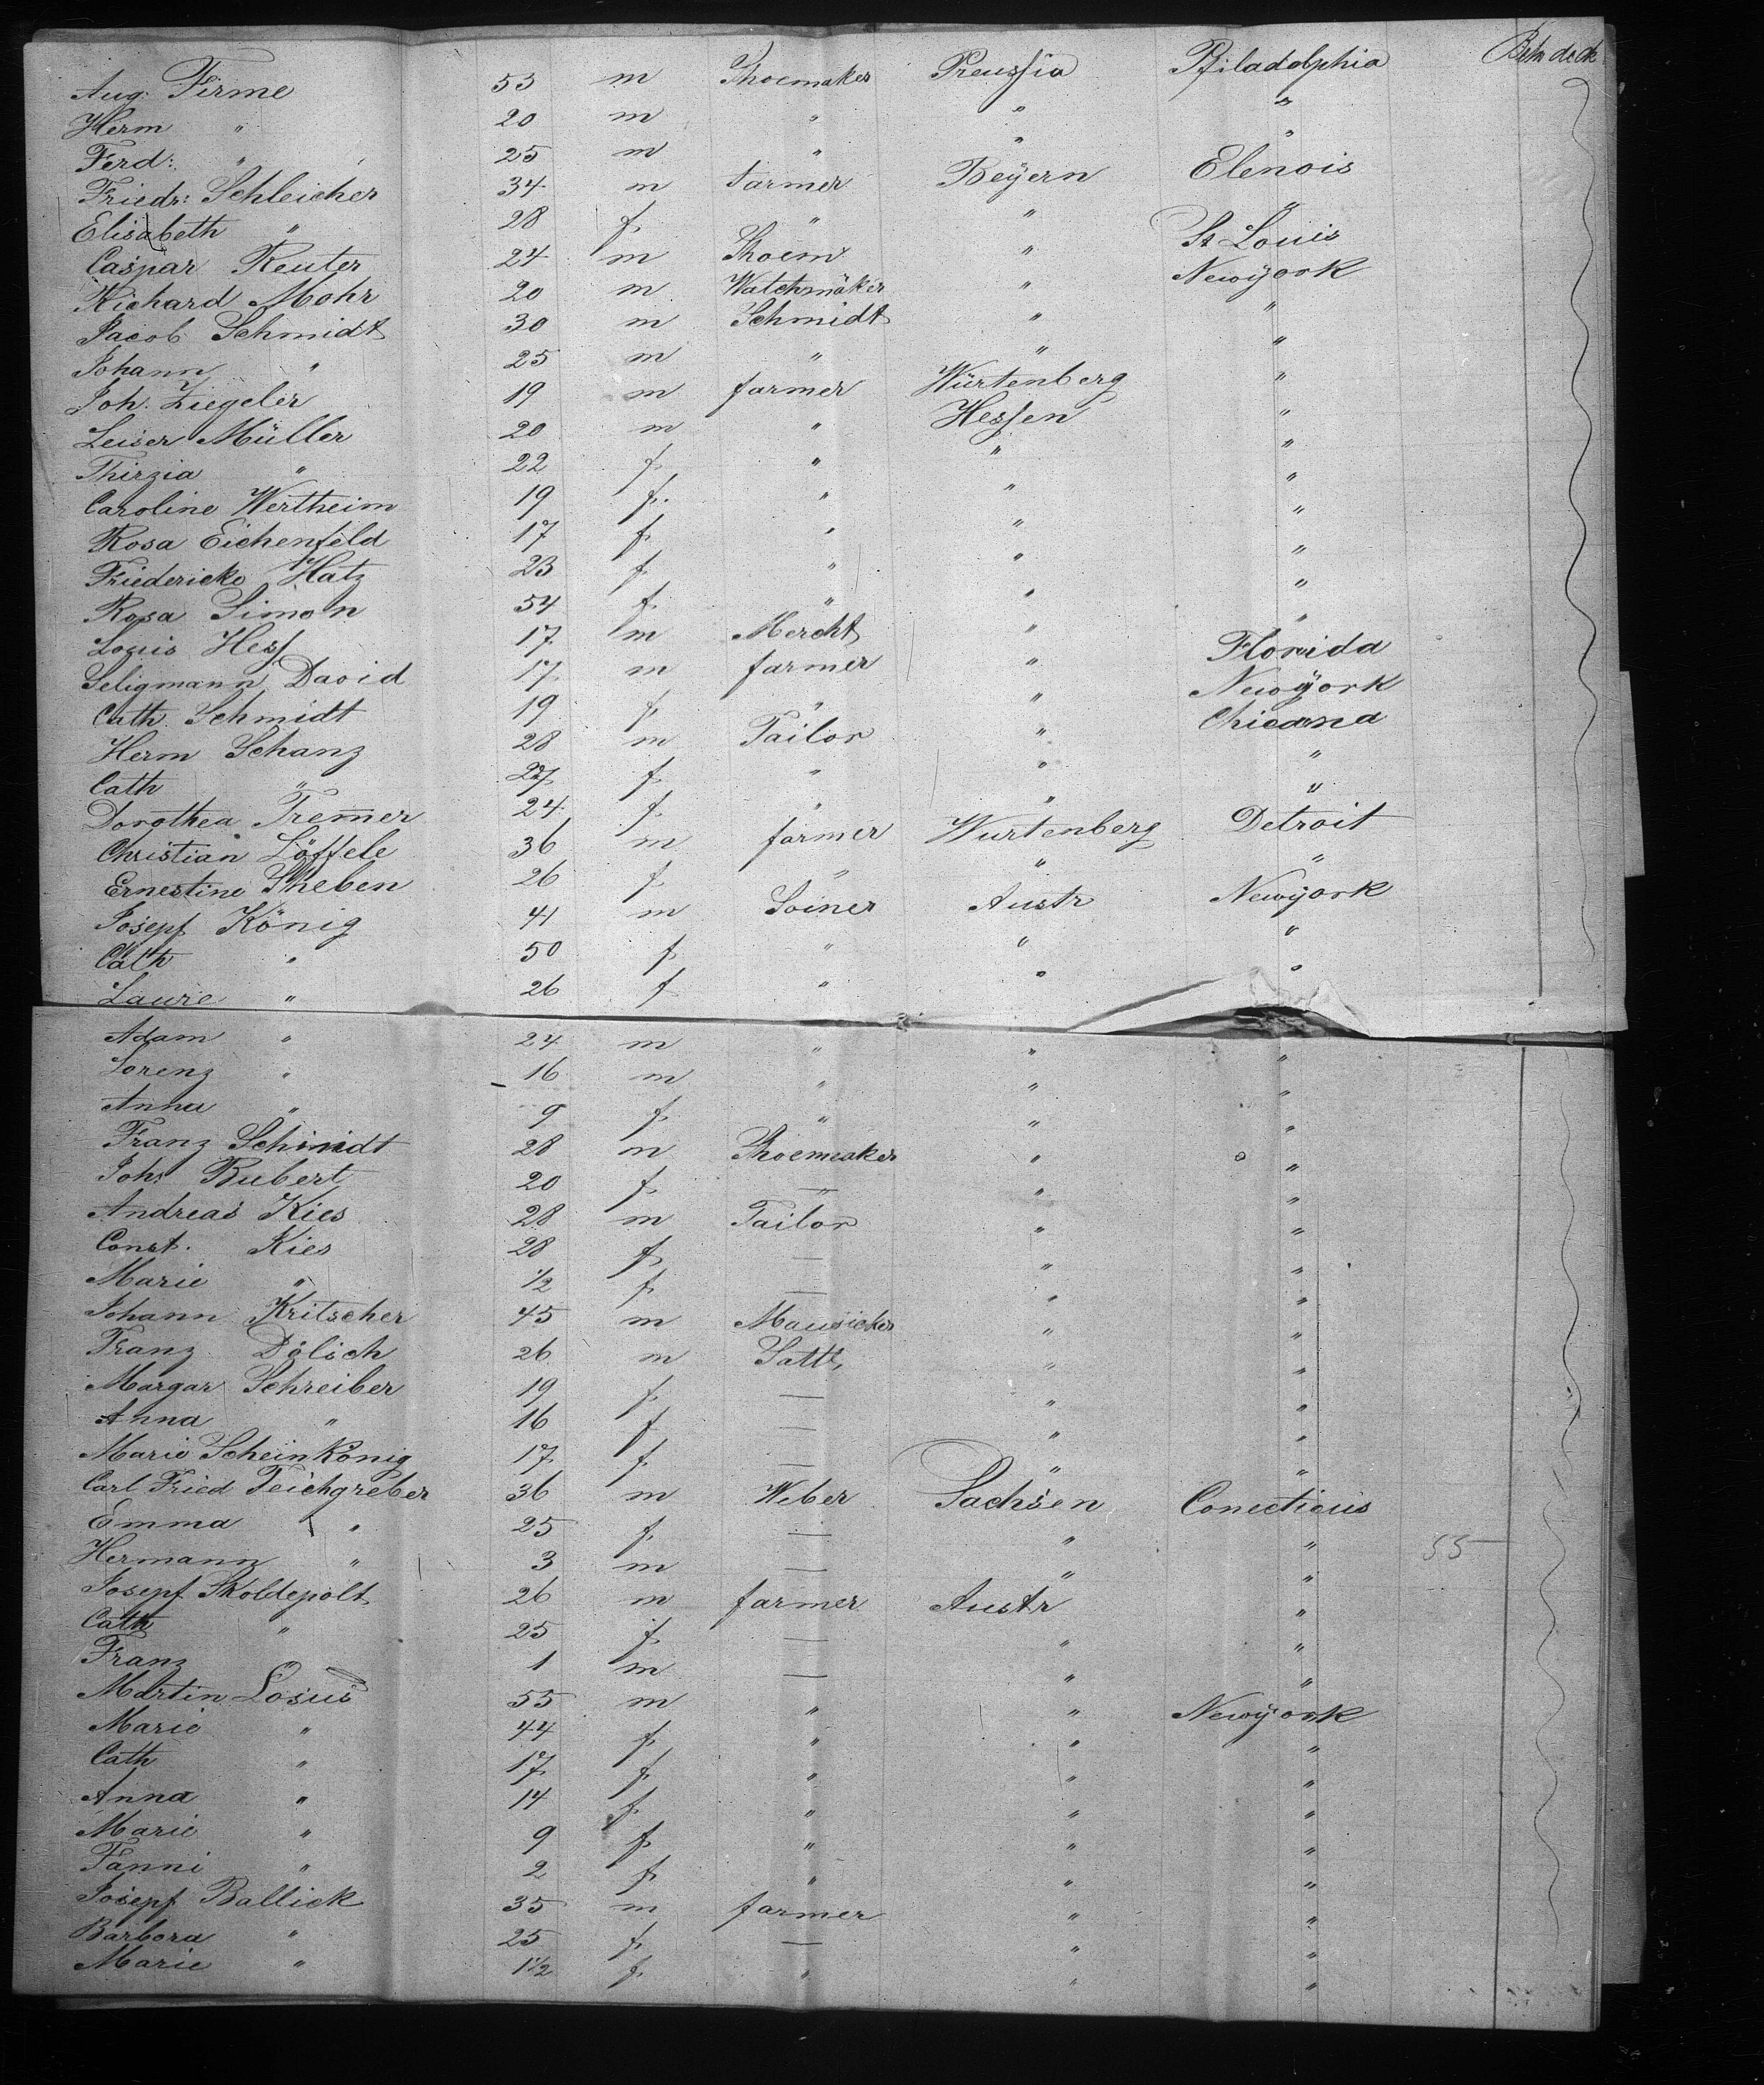 Aug: Firme 53 m Shoemaker Preussia Philadelphia Betw deck
Herm " 20 m " " "
Ferd: " 25 m " " "
Friedr: Schleicher 34 m farmer Beyern Elenois
Elisabeth " 28 f " " "
Caspar Reuter 24 m Shoem " St Louis
Richard Mohr 20 m Watchmäker " Newyork
Jacob Schmidt 30 m Schmidt " "
Johann " 25 m " " "
Joh. Ziegeler 19 m farmer Würtenberg "
Leiser Müller 20 m " Hessen "
Thirzia " 22 f " " "
Caroline Wertheim 19 f. " " "
Rosa Eichenfeld 17 f " " "
Friedericke Hatz 23 f " " "
Rosa Simon 54 f " " "
Louis Hess 17 m Mercht " "
Seligmann David 17 m farmer " Florida
Cath. Schmidt 19 f " " Newyork
Herm Schanz 28 m Tailor "
Cath " 27 f " " "
Dorothea Tremer 24 f " " "
Christian Löffele 36 m farmer Wurtenberg Detroit
Ernestine 26 f " " "
Josepf König 41 m Joiner Austr Newyork
Cath " 50 f " " "
Laure " 26 f " " "
Adam " 24 m " " "
Lorenz " 16 m " " "
Anna " 9 f " " "
Franz Schmidt 28 m Shoemaker " "
Joh: Rubert 20 f " " "
Andreas Kies 28 m Tailor " "
Const. Kies 28 f — " "
Marie " 1/2 f — " "
Johann Kritscher 45 m " "
Franz Dölich 26 m Sattl, " "
Margar Schreiber 19 f — " "
Anna " 16 f — " "
Marie Scheinkönig 17 f — " "
Carl Fried Teichgreber 36 m Weber Sachsen Conecticus
Emma " 25 f — " " 55
Hermann " 3 m — " "
Josepf Skoldepolt 26 m farmer Austr "
Cath " 25 f — " "
Franz " 1 m — " "
Martin Losus 55 m " " Newyork
Marie " 44 f " " "
Cath " 17 f " " "
Anna " 14 f " " "
Marie " 9 f " " "
Fanni " 2 f " " "
Josepf Ballick 35 m farmer " "
Barbora " 25 f — " "
Marie " 1 1/2 f " " "